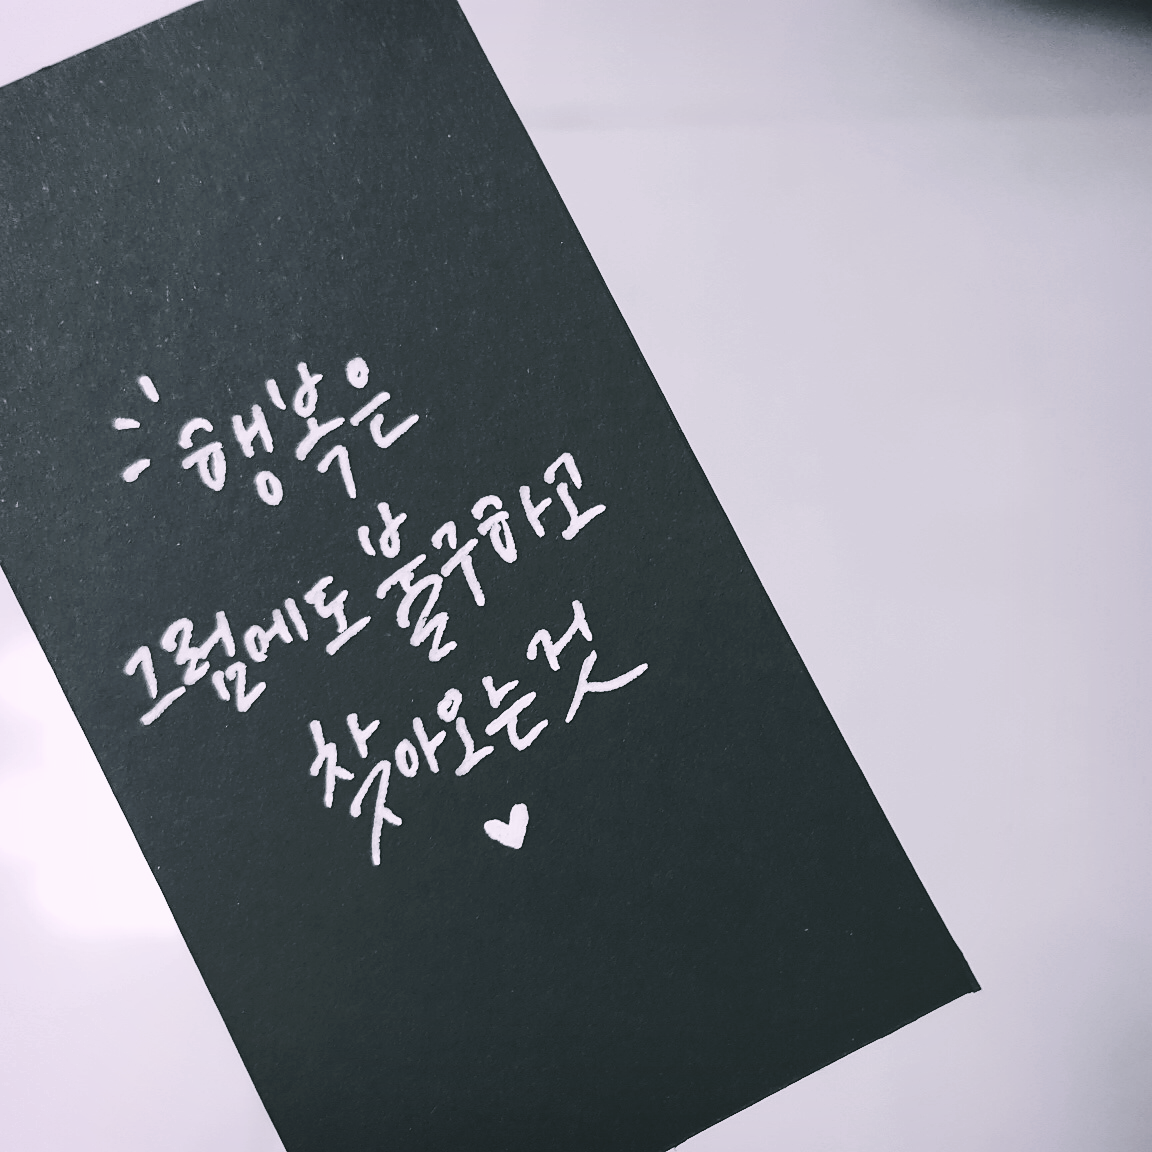 행복은
그럼에도 불구하고
찾아오는 것